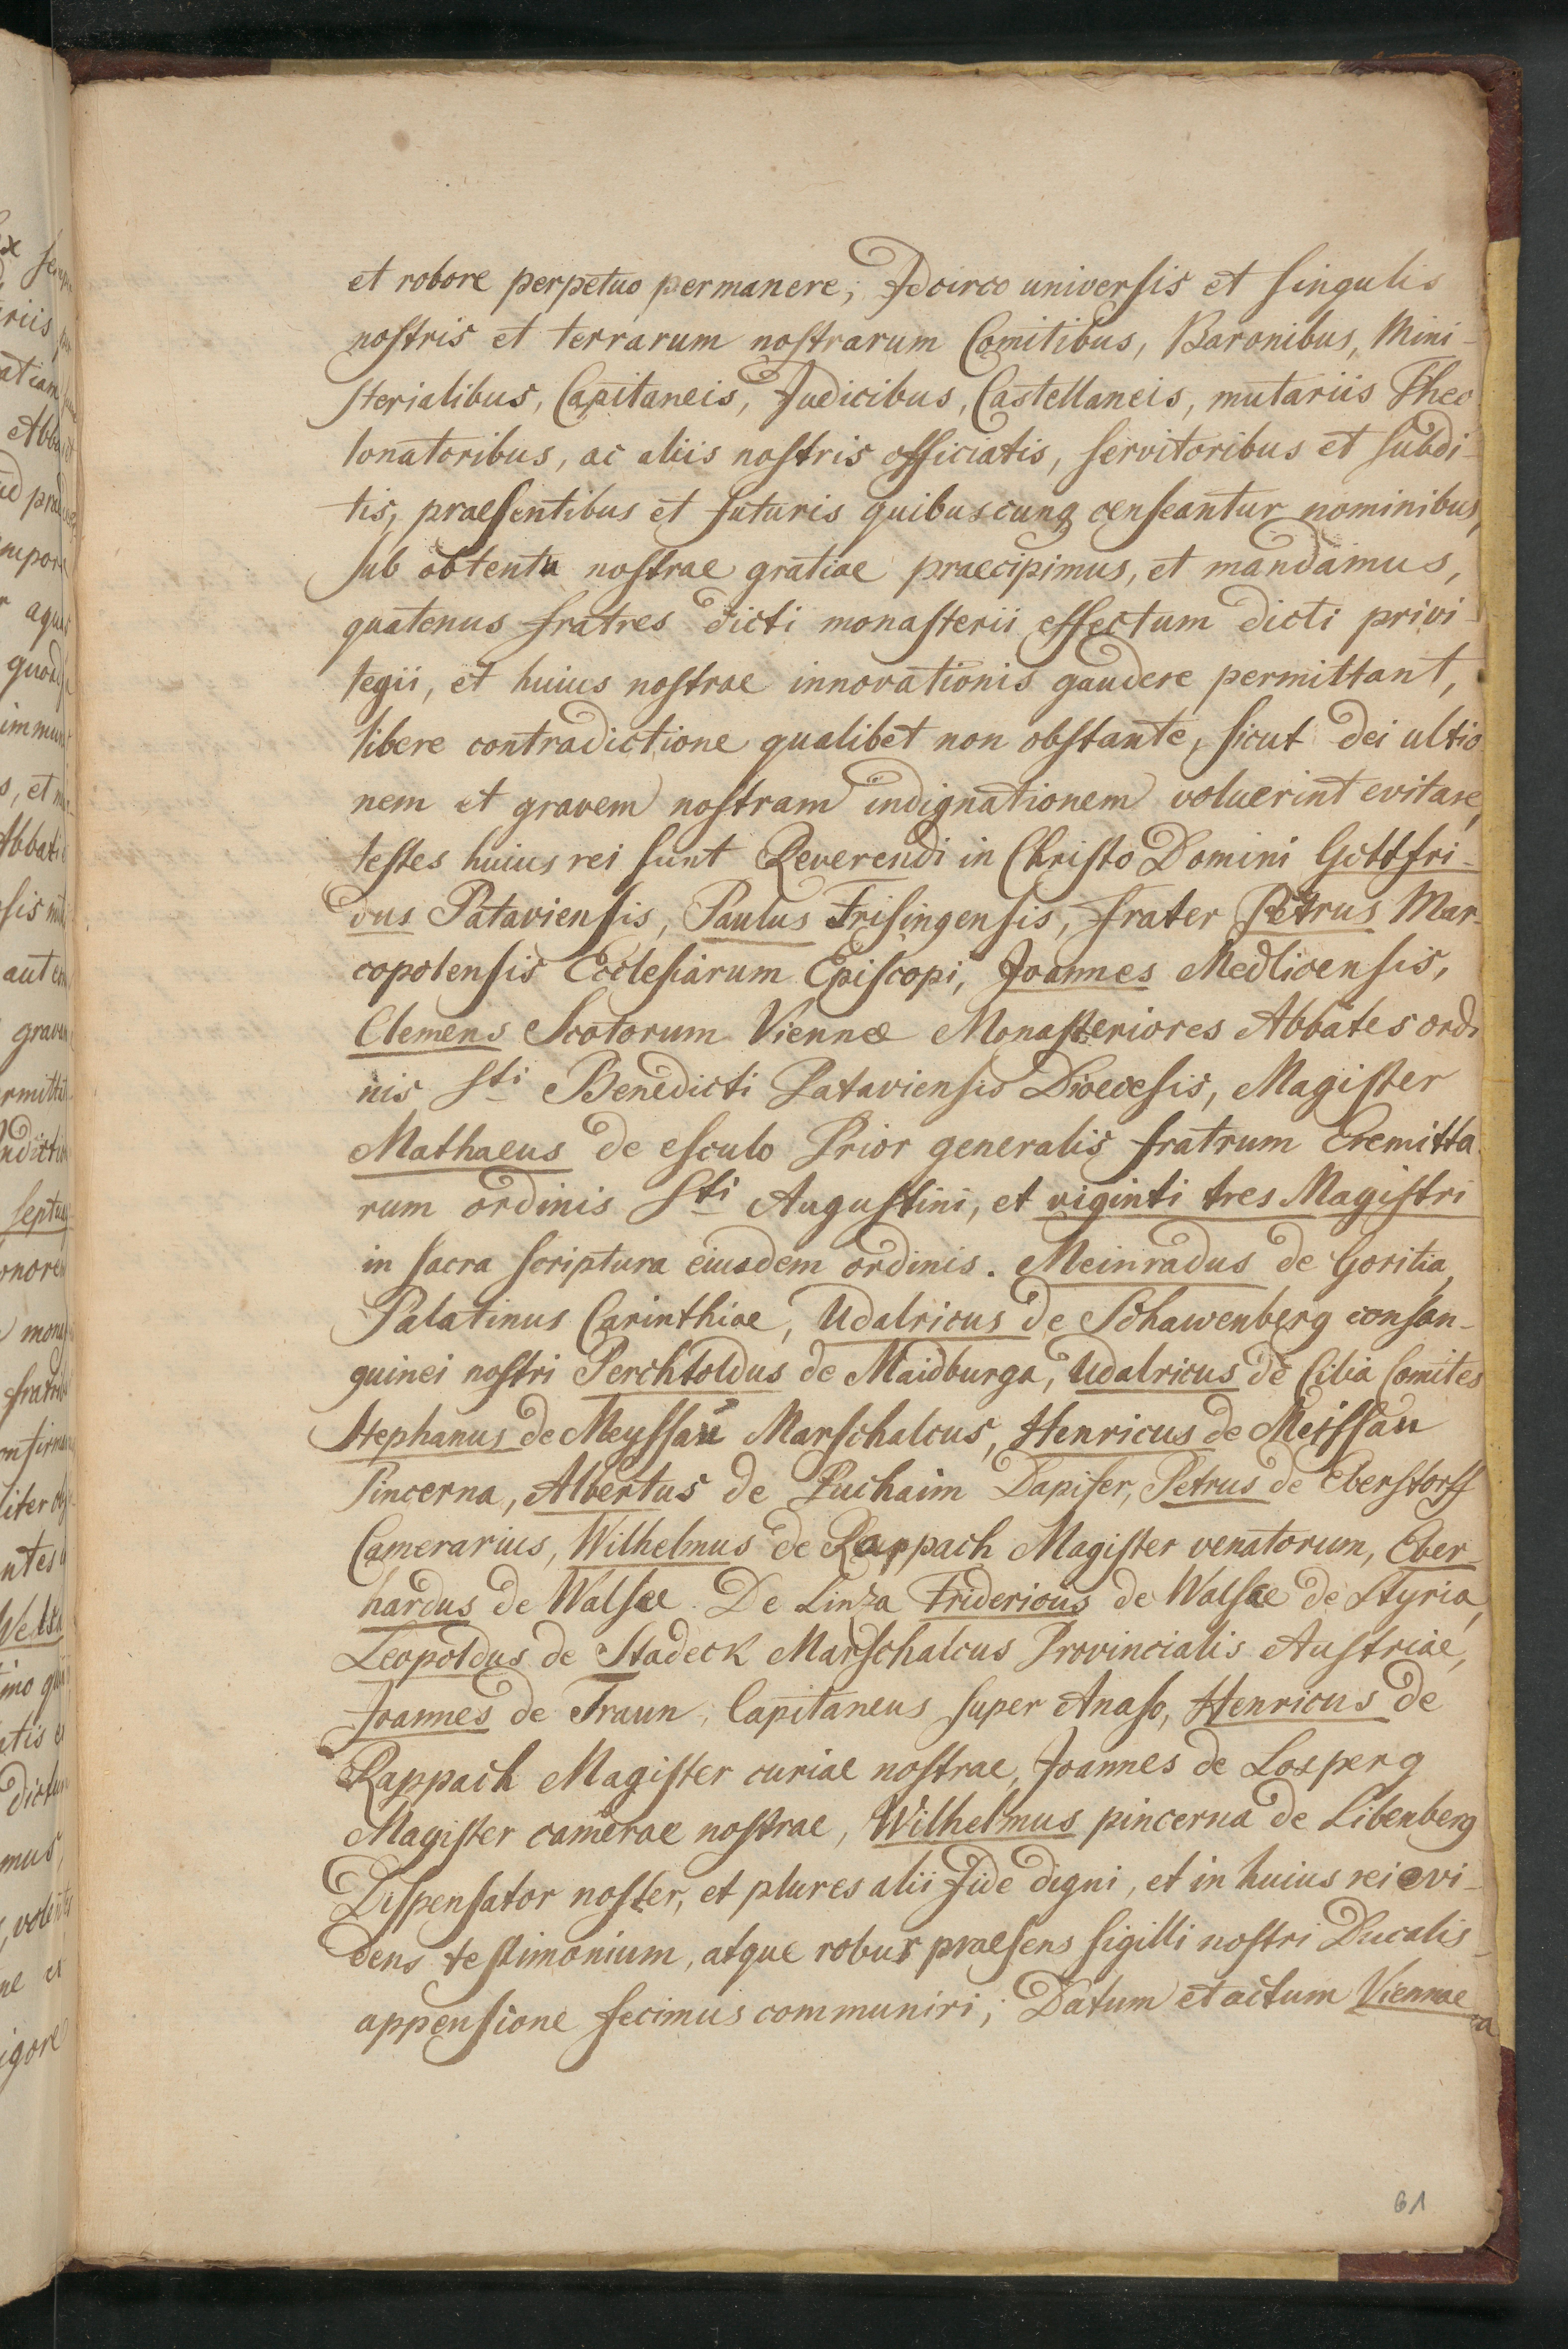 et robore perpetuo permanere; Idcirco universis et singulis
nostris et terrarum nostrarum Comitibus, Baronibus, Mini-
sterialibus, Capitaneis, Judicibus, Castellaneis, mutariis Theo
lonatoribus, ac aliis nostris officiatis, servitoribus et subdi-
tis, praesentibus et futuris quibuscunq censeantur nominibus,
sub obtentu nostrae gratiae praecipimus, et mandamus,
quatenus fratres dicti monasterii effectum dicti privi-
legii, et huius nostrae innovationis gaudere permittant,
libere contradictione qualibet non obstante, sicut dei ultio
nem et gravem nostram indignationem voluerint evitare,
testes huius rei sunt Reverendi in Christo Domini Gottfri-
dus Pataviensis, Paulus Frisingensis, frater Petrus Mar-
copolensis Ecclesiarum Episcopi, Joannes Medlicensis,
Clemens Scotorum Viennae Monasteriores Abbates ordi
nis Sti Benedicti Pataviensis Dioecesis, Magister
Mathaeus de esculo Prior generalis fratrum Eremitta
rum ordinis Sti Augustini, et viginti tres Magistri
in sacra scriptura eiusdem ordinis. Meinradus de Goritia,
Palatinus Carinthiae, Udalricus de Schawenberg consan-
guinei nostri Perchtoldus de Maidburga, Udalricus de Cilia Comites
Stephanus de Meyssau Marschalcus, Henricus de Meissau
Pincerna, Albertus de Puchaim Dapifer, Petrus de Eberstorff
Camerarius, Wilhelmus de Rappach Magister venatorum, Eber-
hardus de Walsee De Linza Fridericus de Walsee de Styria,
Leopoldus de Stadeck Marschalcus Provincialis Austriae,
Joannes de Traun, Capitaneus super Anaso, Henricus de
Rappach Magister curiae nostrae, Joannes de Losperg
Magister camerae nostrae, Wilhelmus pincerna de Libenberg
Dispensator noster, et plures alii fide digni, et in huius rei evi-
dens testimonium, atque robur praesens sigilli nostri Ducalis
appensione fecimus communiri; Datum et actum Viennae
61